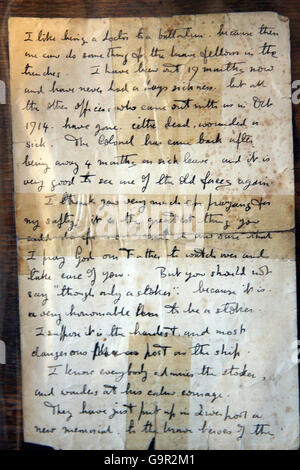 I like being a doctor to a battalion. because then
one can do something for the brave fellows in the
trenches. I have been out 19 months now
and have never had a days sickness. but all
the other officers who came out with us in Oct
1914. have gone. either dead, wounded or
sick. The Colonel has come back after
being away 4 months on sick leave. and it is
very good to see one of the old faces again.
I thank you very much for praying for
my safety. it is the greatest thing you
could do for me. I am sure that
I pray God our Father to watch over and
take care of you. But you should not
say "though only a stoker": because it is
a very honourable to be a stoker.
I suppose it is the hardest and most
dangerous post on the ship.
I know everybody admires the stoker,
and wonders at his calm courage.
They have just put up in Liverpool a
new memorial. to the brave heroes of the
alamy
a
alamy
Image ID: G9R2M1
www.alamy.com